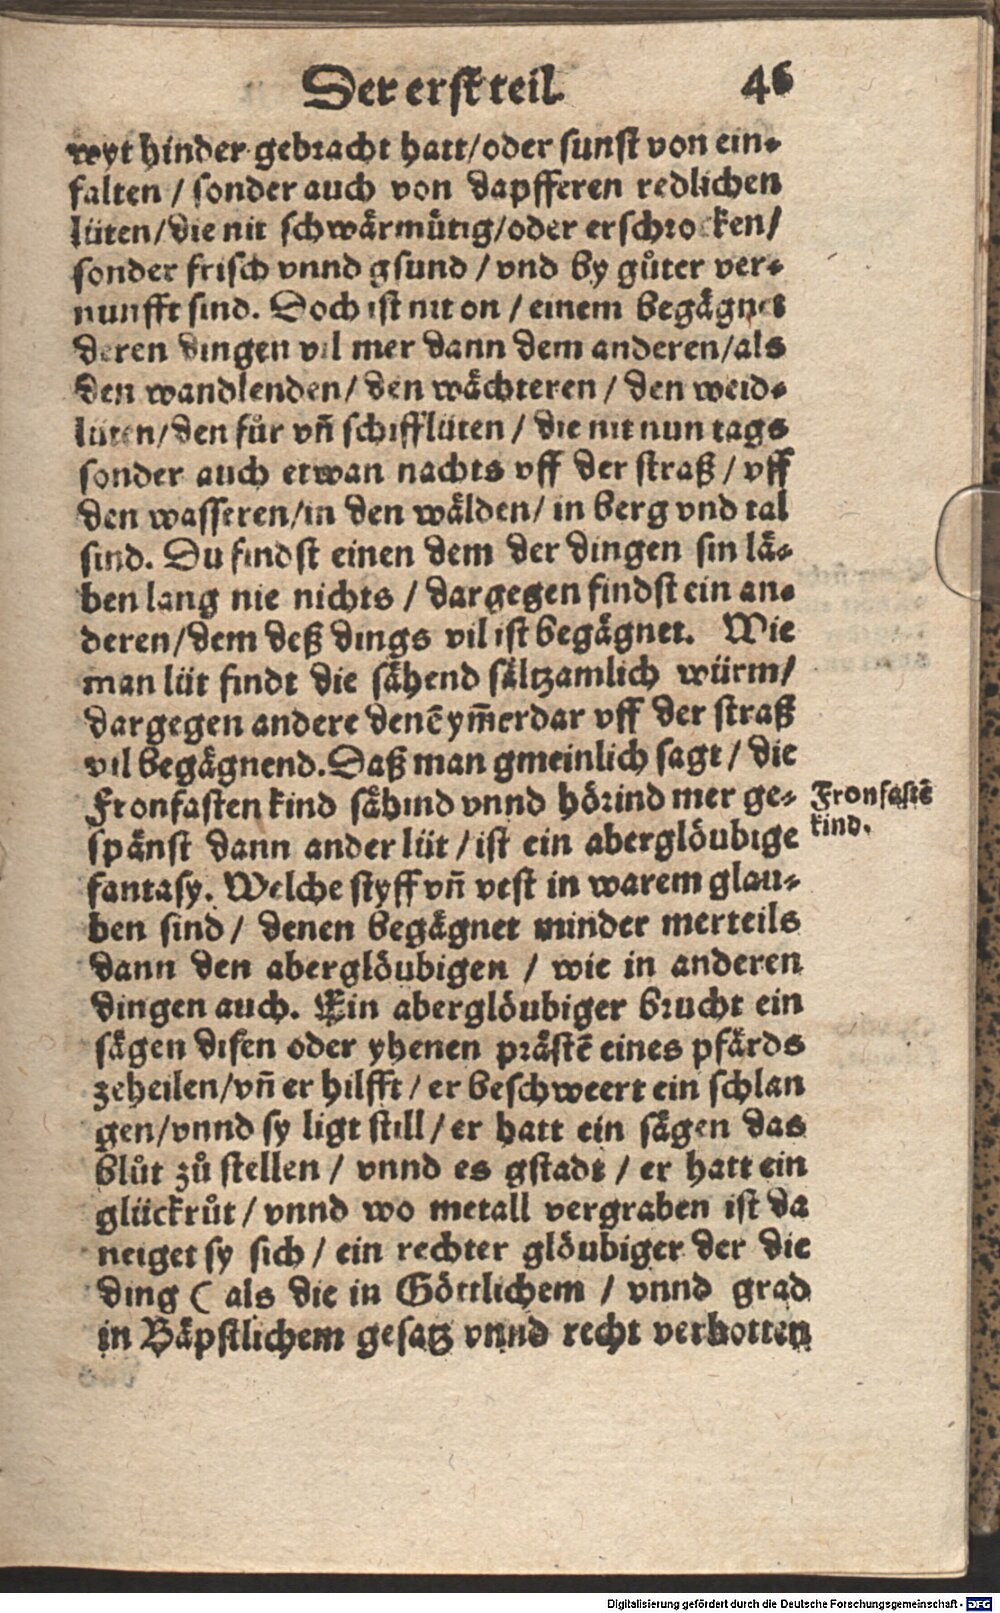 Der erst teil. 46
wyt hinder gebracht hatt/oder sunst von ein-
falten / sonder auch von dapfferen redlichen
lüten/die nit schwärmütig/oder erschrocken/
sonder frisch vnnd gsund / vnd by gůter ver-
nunfft sind. Doch ist nit on / einem begägnet
deren dingen vil mer dann dem anderen/als
den wandlenden/ den wächteren / den weid-
lüten/den fůr vñ schifflüten / die nit nun tags
sonder auch etwan nachts vff der straß / vff
den wasseren/in den wälden/ in berg vnd tal
sind. Du findst einen dem der dingen sin lä-
ben lang nie nichts / dargegen findst ein an-
deren/dem deß dings vil ist begägnet. Wie
man lüt findt die sähend sältzamlich würm/
dargegen andere denē ym̄erdar vff der straß
vil begägnend. Daß man gmeinlich sagt / die
Fronfasten kind sähind vnnd hörind mer ge-
spänst dann ander lüt / ist ein aberglöubige
fantasy. Welche styff vñ vest in warem glau-
ben sind / denen begägnet minder merteils
dann den aberglöubigen / wie in anderen
dingen auch. Ein aberglöubiger brucht ein
sägen disen oder yhenen prästē eines pfärds
zeheilen/vñ er hilfft / er beschweert ein schlan
gen/vnnd sy ligt still / er hatt ein sägen das
blůt zů stellen / vnnd es gstadt / er hatt ein
glückrůt / vnnd wo metall vergraben ist da
neiget sy sich / ein rechter glöubiger der die
ding ( als die in Göttlichem / vnnd grad
in Bäpstlichem gesatz vnnd recht verbotten
Fronfastē
kind.
Digitalisierung gefördert durch die Deutsche Forschungsgemeinschaft - DFG